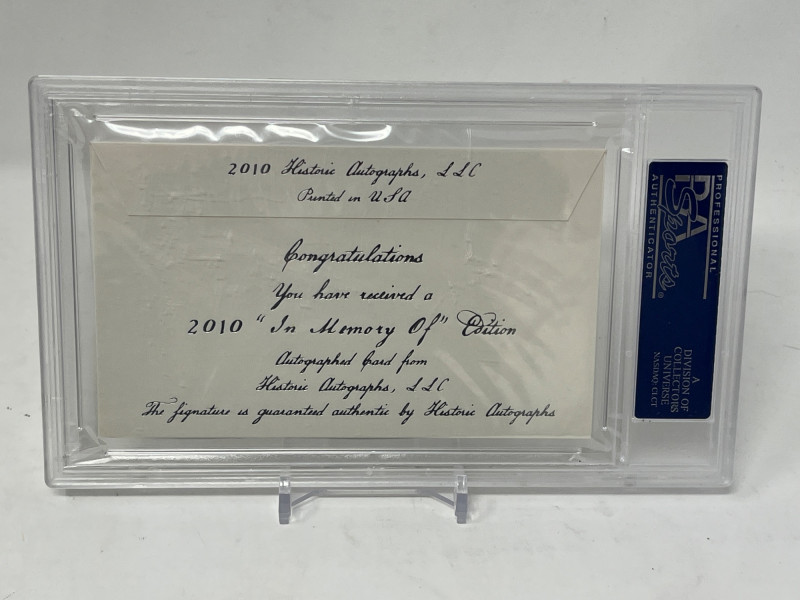 2010 Historic Autographs, LLC
Printed in USA
Congratulations
You have received a
2010 "In Memory Of" Edition
Autographed Card from
Historic Autographs, LLC
The signature is guaranteed authentic by Historic Autographs
PROFESSIONAL
PSA
Sports®
AUTHENTICATOR
A
DIVISION OF
COLLECTORS
UNIVERSE
NASDAQ: CLCT